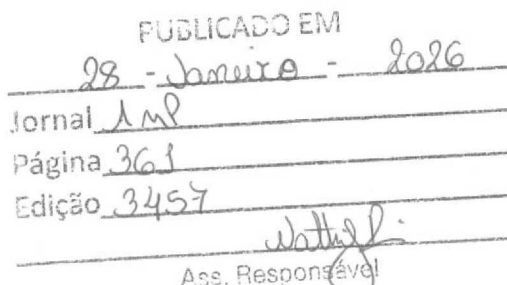 PUBLICADO EM
28 - Janeiro - 2026
Jornal AMP
Página 361
Edição 3457
Ass. Responsável